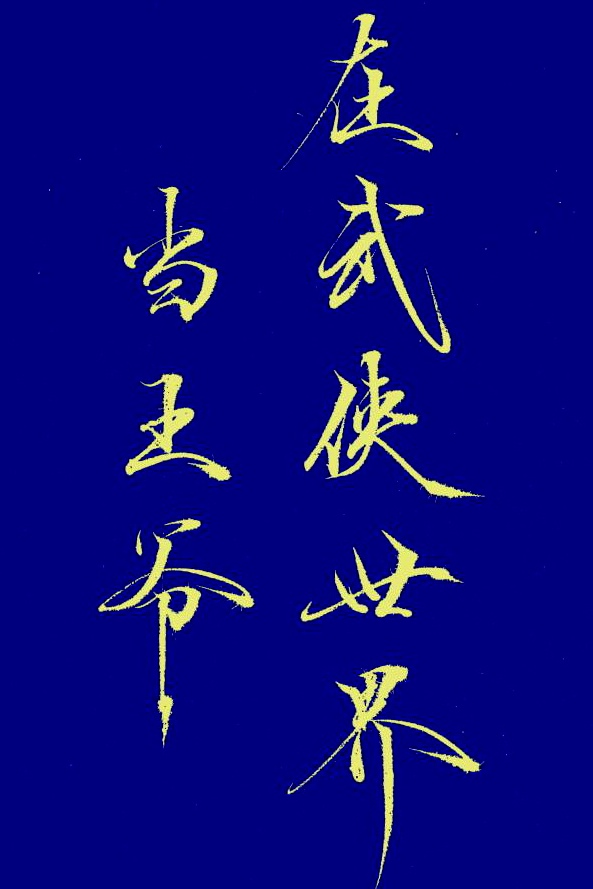 在武侠世界
当王爷